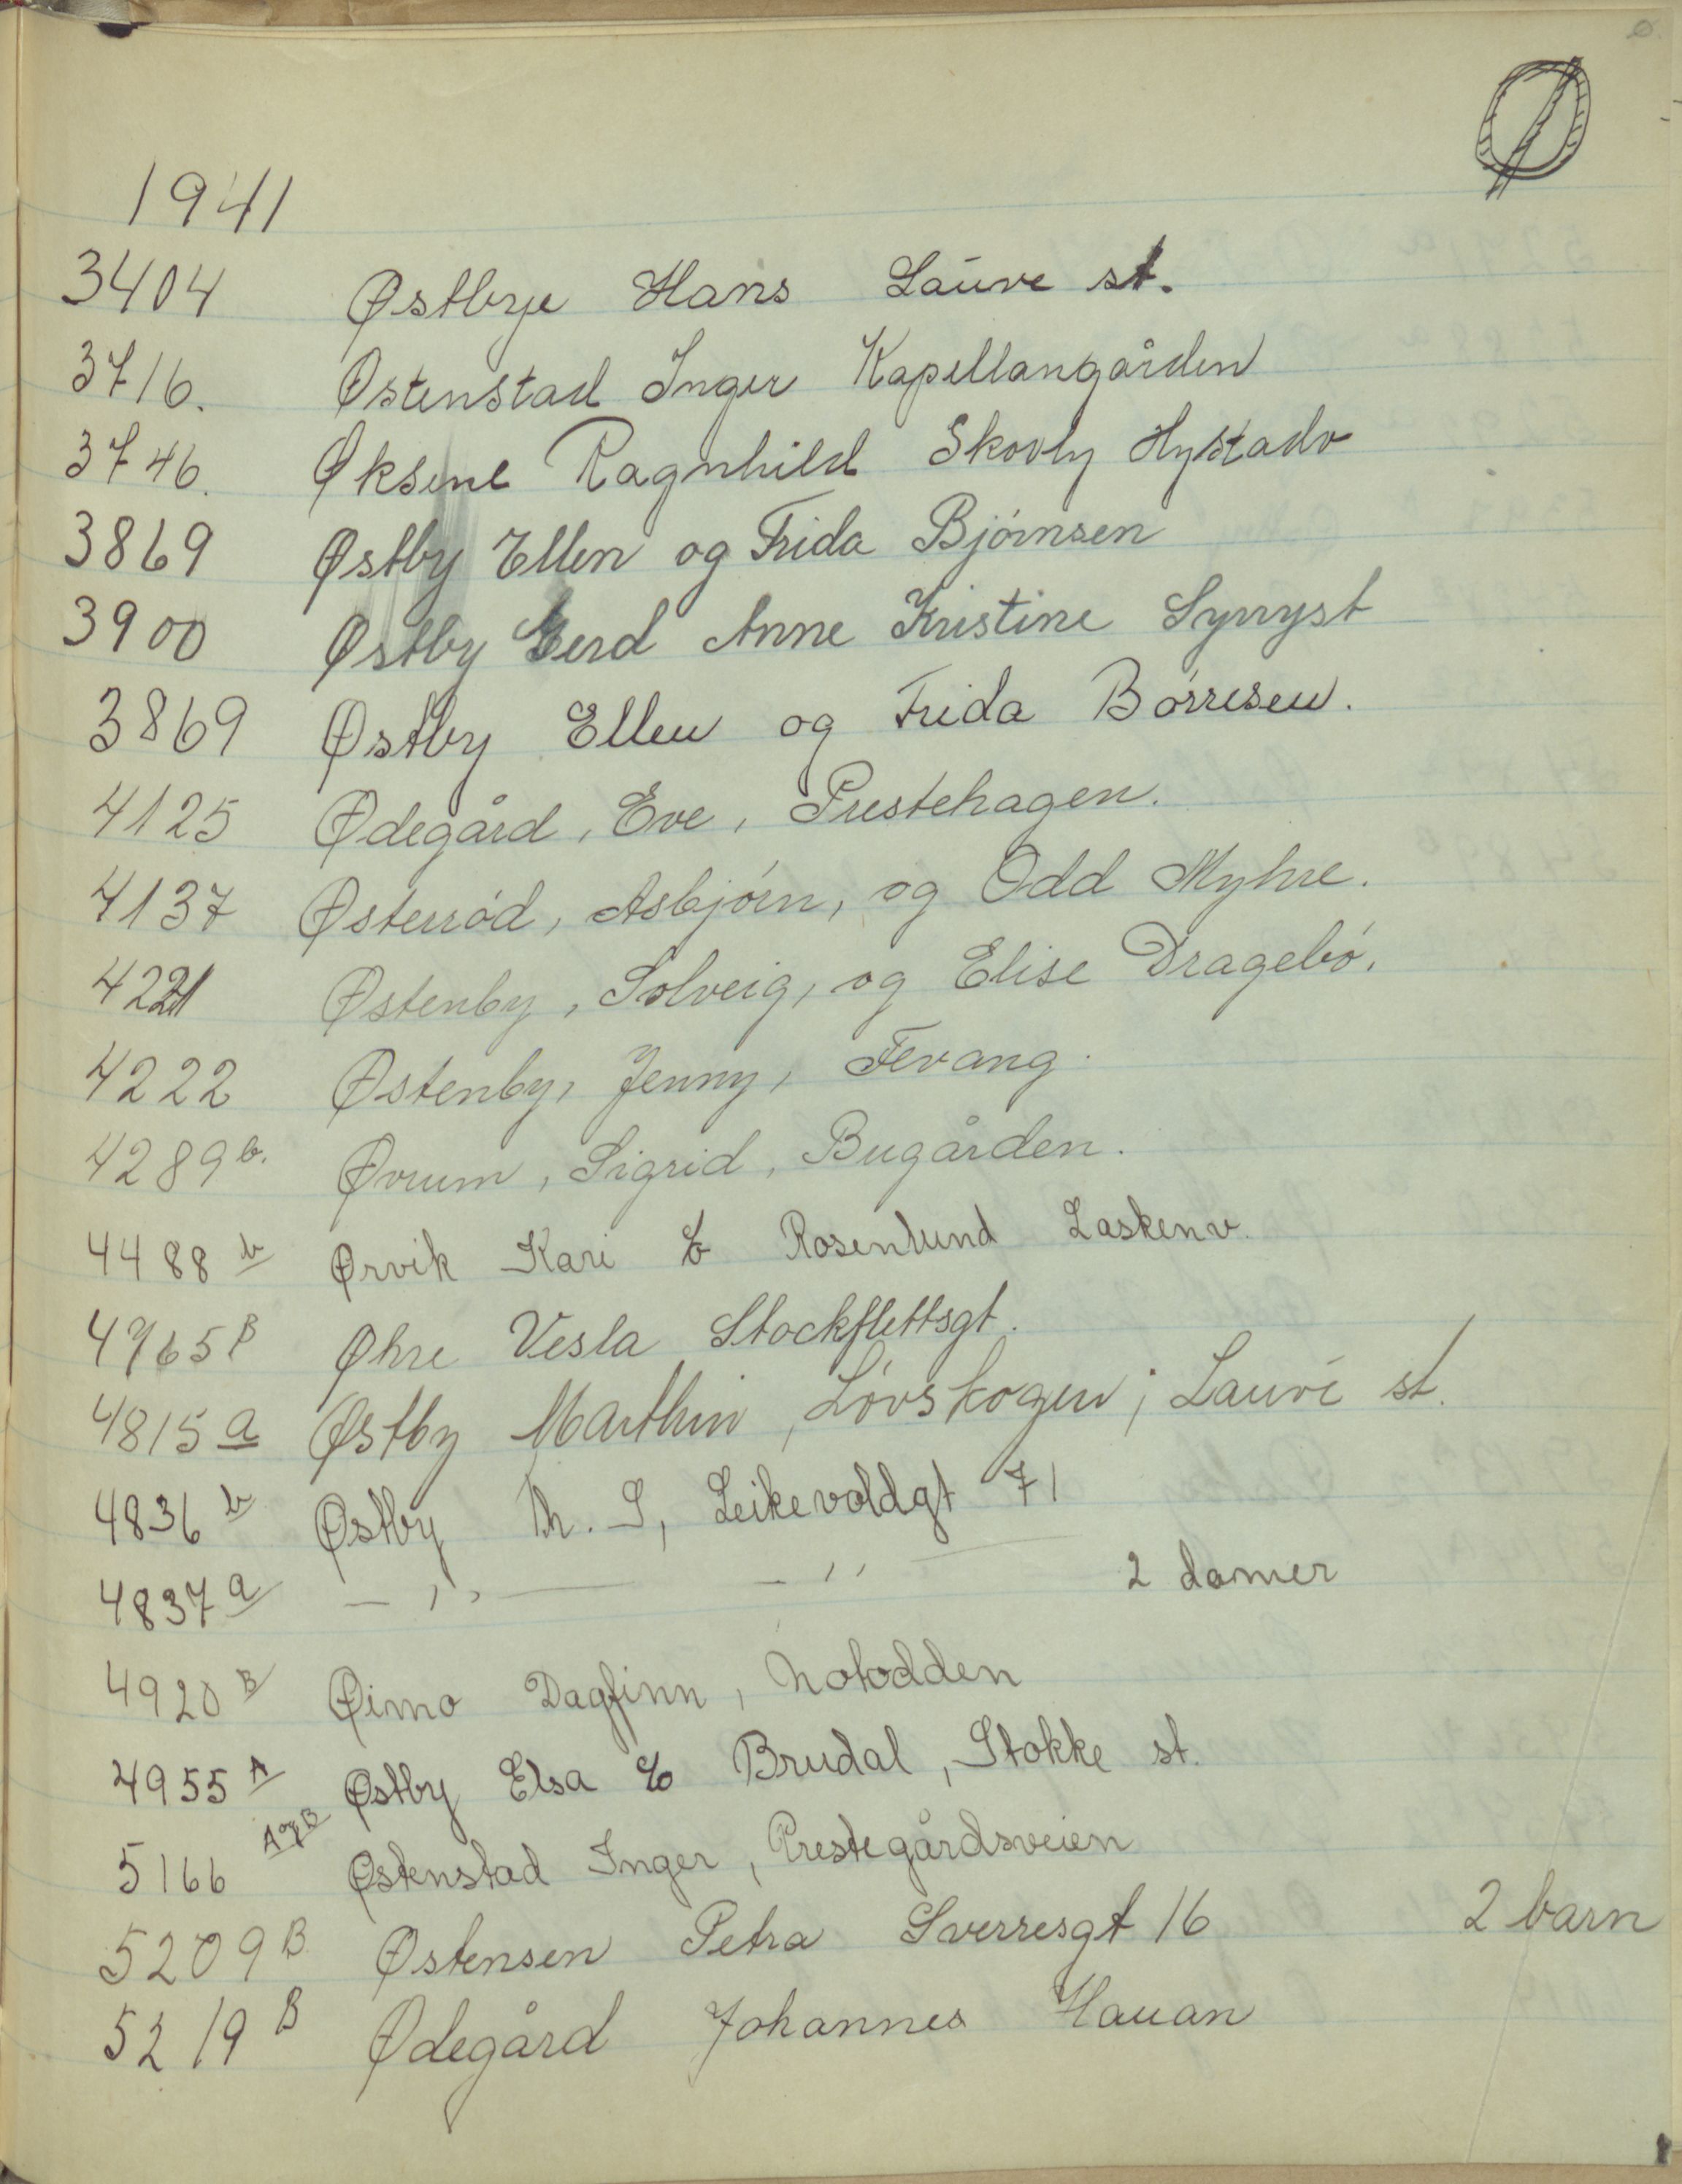 Ø
1941
3404 Østbye Hans Lauve st.
3716. Østenstad Inger Kapellangården
3746. Øksene Ragnhild Skovly Hystadv
3869 Østby Ellen og Frida Bjørnsen
3900 Østby Gerd Anne Kristine
3869 Østby Ellen og Frida Børresen.
4125 Ødegård, Eve, Prestehagen.
4137 Østerrød, Asbjørn, og Odd Myhre.
4221 Østenby, Solveig, og Elise Dragebø.
4222 Østenby, Jenny, Fevang.
4289 b. Øvrum, Sigrid, Bugården.
4488 b Ørvik Kari c/o Rosenlund Laskenv.
4765 B Øhre Vesla Stockflettsgt.
4815 a Østby Marthin, Løvskogen, Lauve st.
4836 b Østby Th. S, Leikevoldgt 71
4837 a — ,, — — ,, 2 damer
4920 B Øimo Dagfinn, Notodden
4955 A Østby Elsa c/o Brudal, Stokke st.
5166 A og B Østenstad Inger, Prestegårdsveien
5209 B Østensen Petra Sverresgt 16 2 barn
5219 B Ødegård Johannes Hauan